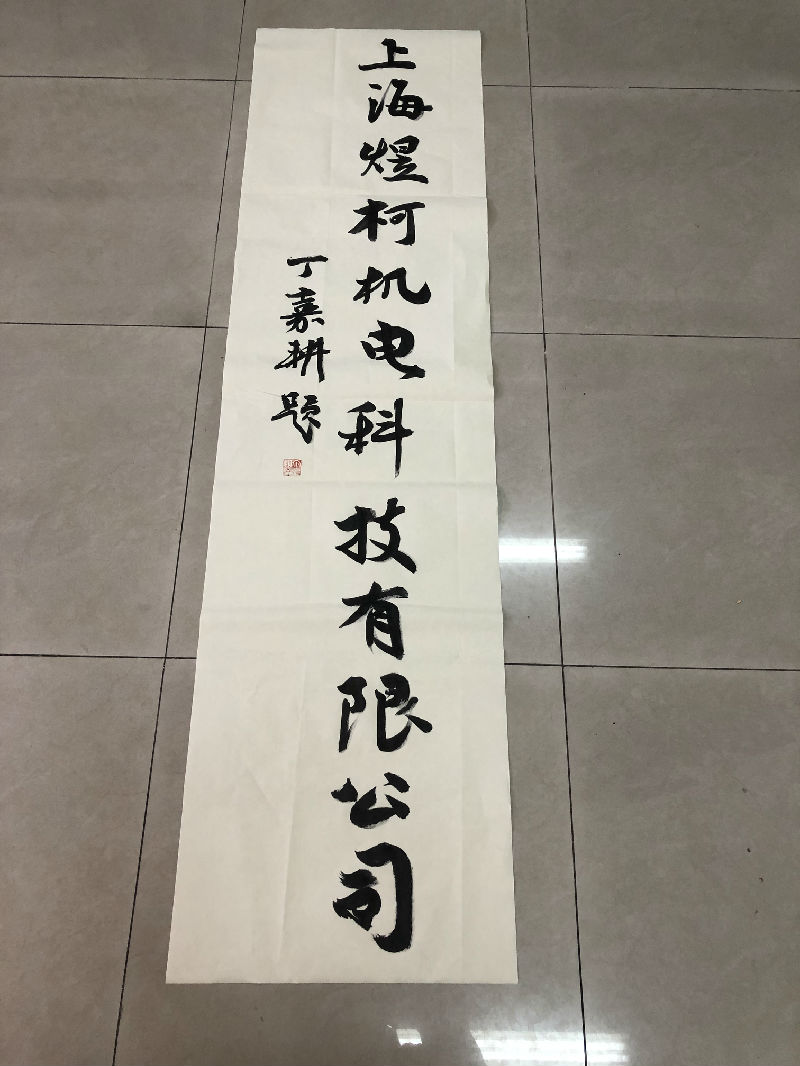 上海煜柯机电科技有限公司
丁嘉耕题